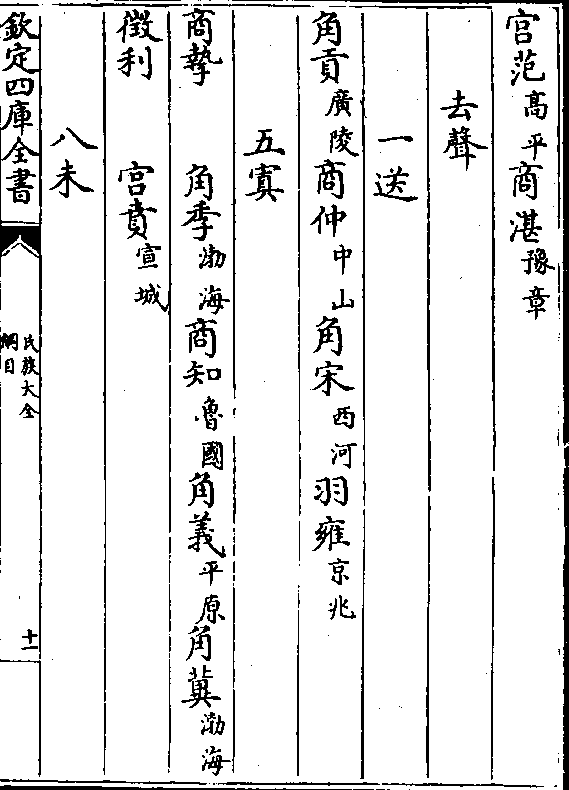 宫范高平商湛豫章
去聲
一送
角貢廣陵商仲中山角宋西河羽雍京兆
五寘
商摯 角季渤海商知魯國角義平原角冀渤海
徵利 宫賁宣城
八未
欽定四庫全書
氏族大全
綱目
十一